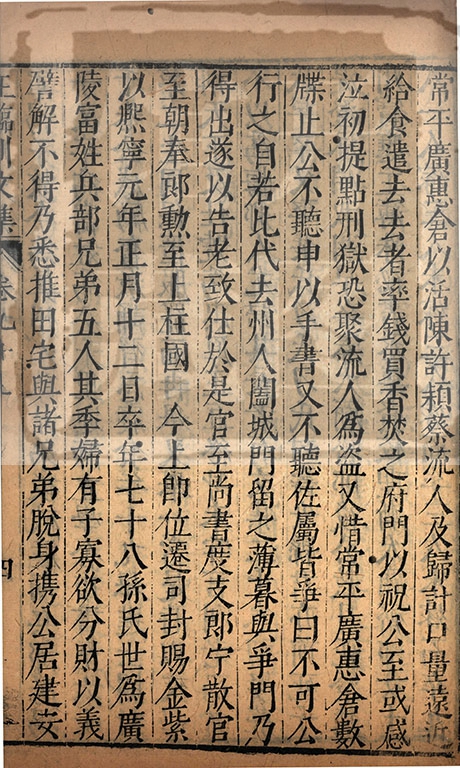 常平廣惠倉以活陳許潁蔡流人及歸計口量遠近
給食遣去去者率錢買香焚之府門以祝公至或感
泣初提點刑獄恐聚流人爲盜又惜常平廣惠倉數
牒止公不聽申以手書又不聽佐屬皆爭曰不可公
行之自若比代去州人闔城門留之薄暮與爭門乃
得出遂以告老致仕於是官至尚書度支郎中散官
至朝奉郎勲至上柱國 今上卽位遷司封賜金紫
以熙寧元年正月十二日卒年七十八孫氏世爲廣
陵富姓兵部兄弟五人其季婦有子寡欲分財以義
譬解不得乃悉推田宅與諸兄弟脫身携公居建安
王臨川文集 卷九十 四